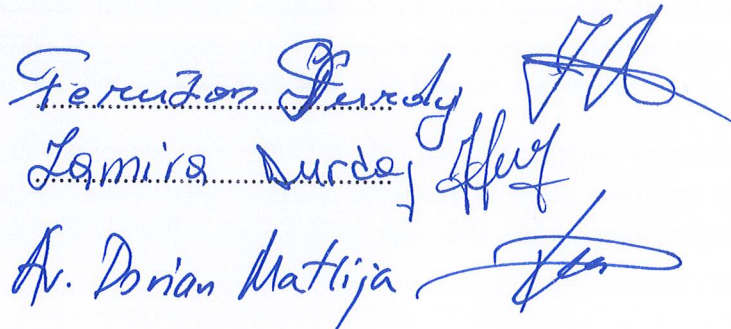 Feruzan Durdaj
Zamira Durdaj
Av. Dorian Matlija